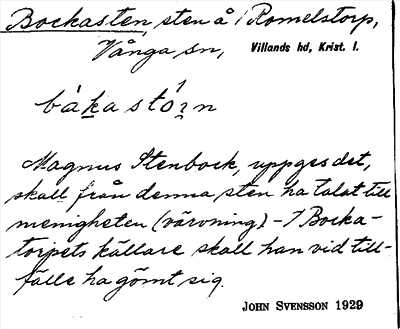 Bockasten, sten å 1 Romelstorp,
Vånga sn, Villands hd, Krist. l.
bákastòrn
Magnus Stenbock, uppges det,
skall från denna sten ha talat till
menigheten (värvning) - I Bocka-
torpets källare skall han vid till-
fälle ha gömt sig.
JOHN SVENSSON 1929